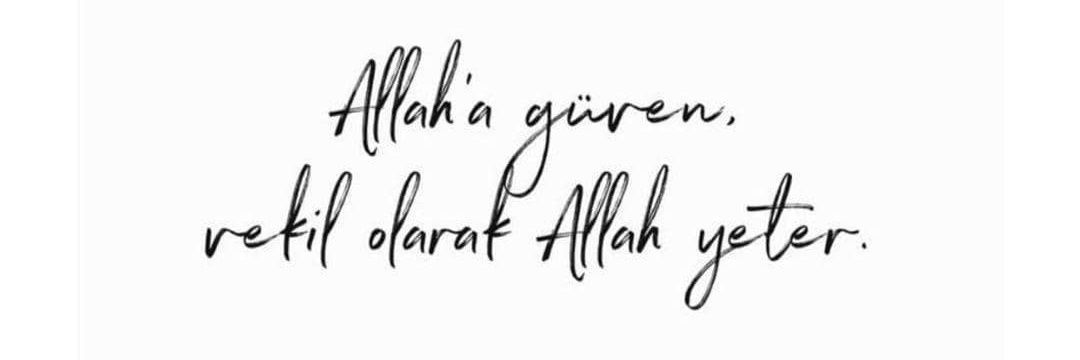 Allah'a güven,
vekil olarak Allah yeter.